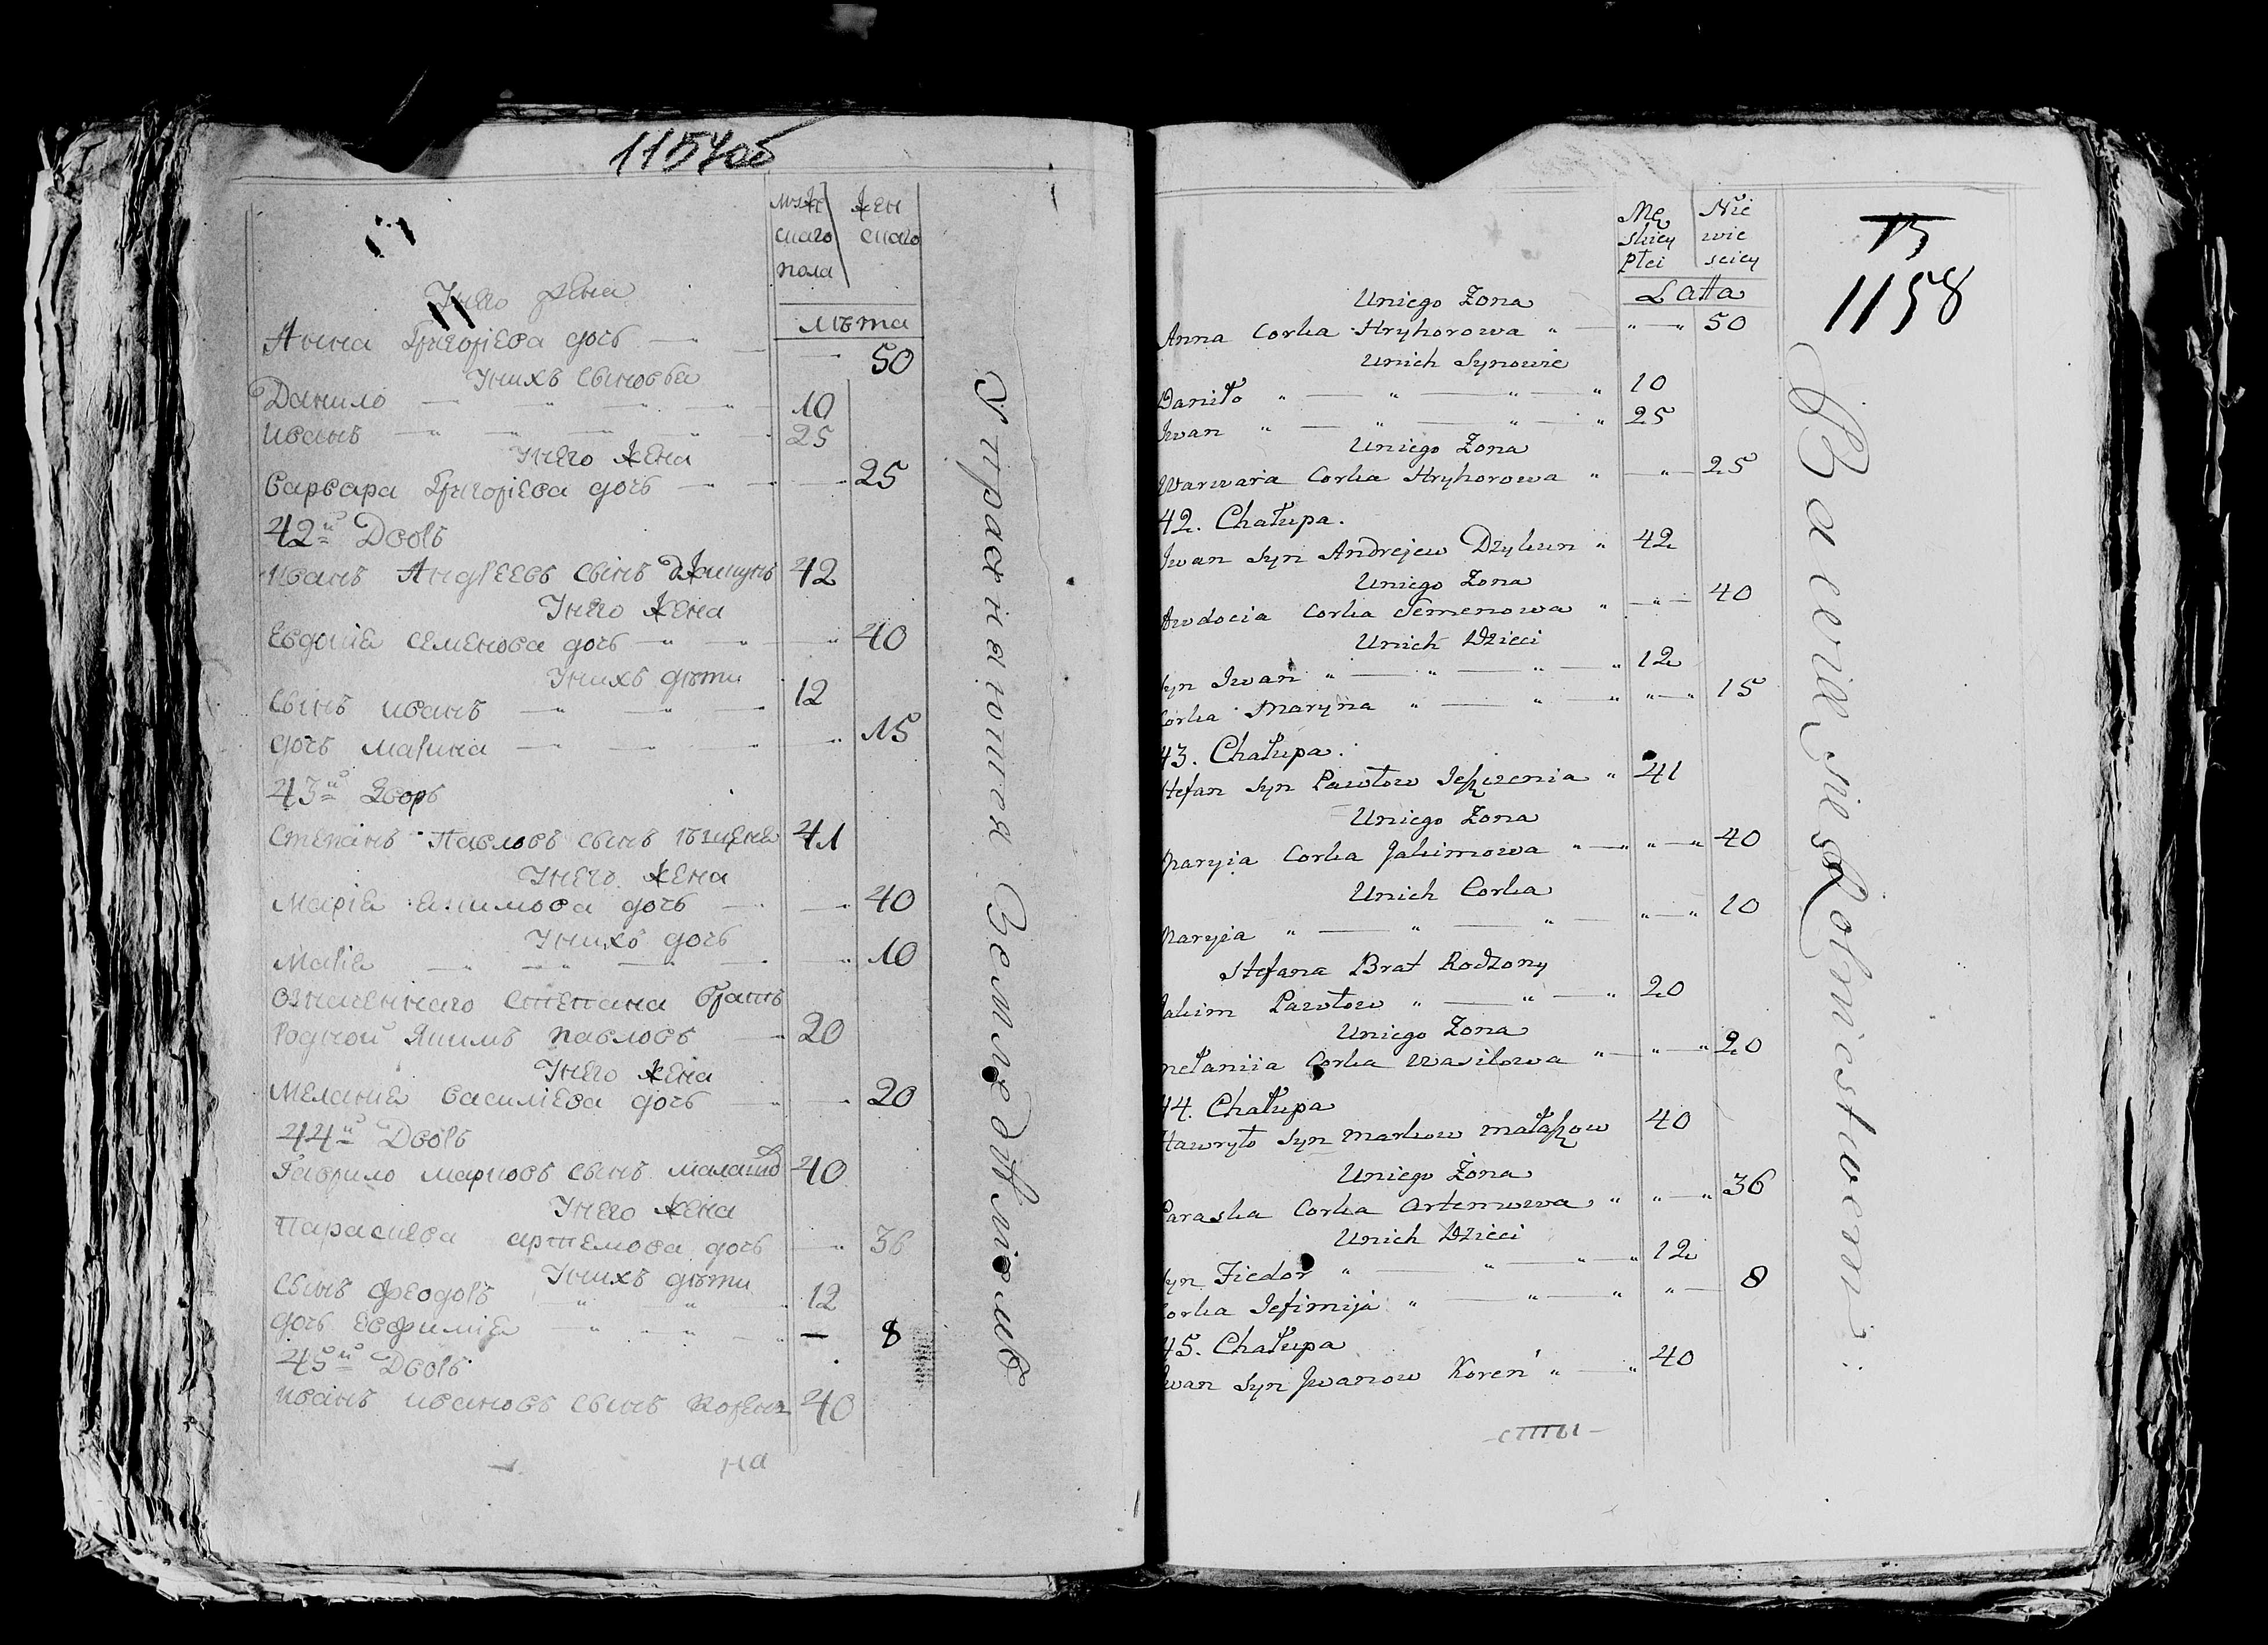 1157об
муже
скаго
пола
жен
скаго
лѣта
У него жена
Анна Григорiева дочь 50
У нихъ сыновья
Данило 10
Иванъ 25
У него жена
Варвара Григорiева дочь 25
42й Дворъ
Иванъ Андреевъ сынъ 42
У него жена
Евдокiя Семенова дочь 40
У нихъ дѣти
Сынъ Иванъ 12
дочь Марина 15
43й Дворъ
Степанъ Павловъ сынъ 41
У него жена
Марiя Якимова дочь 40
У нихъ дочь
Марiя 10
Означеннаго Степана братъ
родной Якимъ Павловъ 20
У него жена
Меланiя Василiева дочь 20
44й Дворъ
Гаврило Марковъ сынъ Малашо 40
У него жена
Параскева Артемова дочь 36
У нихъ дѣти
Сынъ Феодоръ 12
дочь Евфимiя 8
45й Дворъ
Иванъ Ивановъ сынъ Корень 40
на
Упражняются Земледѣлiемъ
Mę
skiey
Płci
Nie
wie
sciey
Latta
1158
Uniego Zona
Anna Corka Hryhorowa 50
Unich Synowie
Daniło 10
Iwan 25
Uniego Zona
Warwara Corka Hryhorowa 25
42. Chałupa.
Iwan Syn Andrejew Dzykun 42
Uniego Zona
Awdocia Corka Semenowa 40
Unich Dzieci
Syn Iwan 12
Corka Maryna 15
43. Chałupa.
Stefan Syn Pawłow 41
Uniego Zona
Maryia Corka Jakimowa 40
Unich Corka
Maryia 10
Stefana Brat Rodzony
Jakim Pawłow 20
Uniego Zona
Mełaniia Corka Wasilowa 20
44. Chałupa
Hawryło Syn Markow Małaszow 40
Uniego Zona
Paraska Corka Artemowa 36
Unich Dzieci
Syn Fiedor 12
Corka Jefimija 8
45. Chałupa
Iwan Syn Iwanow Koreń 40
Bawią się Rolnictwem